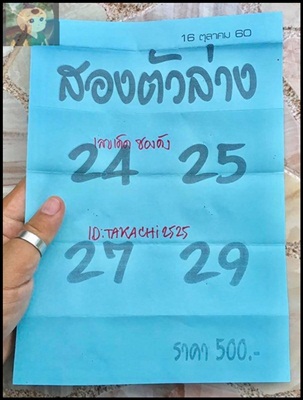 16 ตุลาคม 60
สองตัวล่าง
เลขเด็ด ซองดัง
24 25
ID:TAKACHi2525
27 29
ราคา 500.-